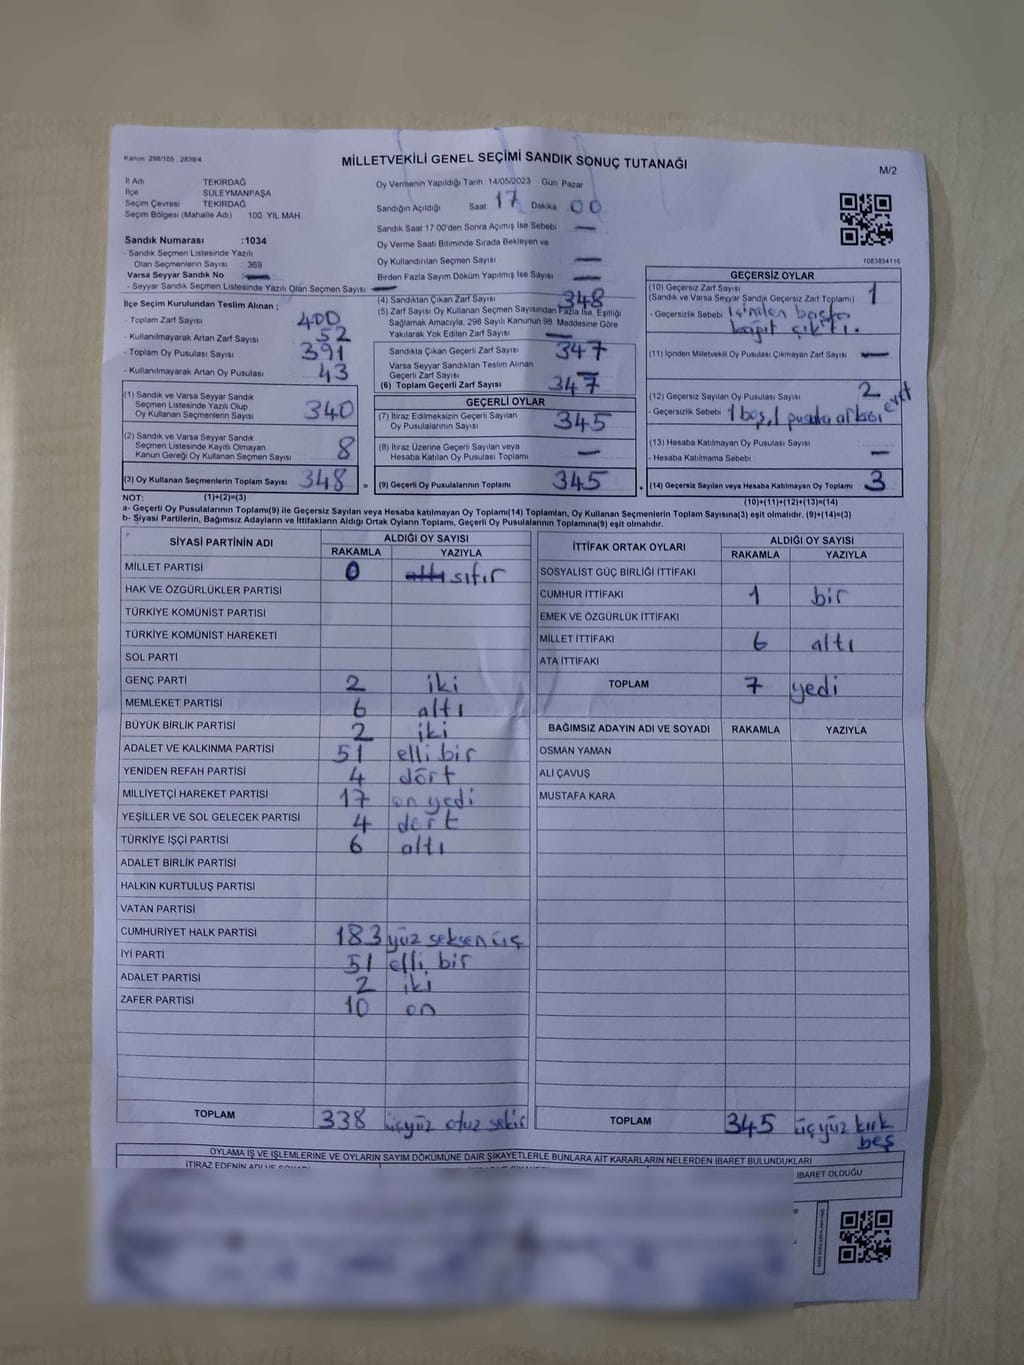 Kanun 298/105 : 2839/4
MİLLETVEKİLİ GENEL SEÇİMİ SANDIK SONUÇ TUTANAĞI
M/2
İl Adı TEKİRDAĞ
İlçe SÜLEYMANPAŞA
Seçim Çevresi TEKİRDAĞ
Seçim Bölgesi (Mahalle Adı) 100 YIL MAH.
Oy Vermenin Yapıldığı Tarih :14/05/2023 Gün Pazar
Sandığın Açıldığı Saat 17 Dakika 00
Sandık Saat 17 00'den Sonra Açılmış İse Sebebi —
Oy Verme Saati Bitiminde Sırada Bekleyen ve
Oy Kullandırılan Seçmen Sayısı —
Birden Fazla Sayım Döküm Yapılmış İse Sayısı —
1083854116
Sandık Numarası :1034
- Sandık Seçmen Listesinde Yazılı
Olan Seçmenlerin Sayısı : 369
Varsa Seyyar Sandık No : —
- Seyyar Sandık Seçmen Listesinde Yazılı Olan Seçmen Sayısı: —
İlçe Seçim Kurulundan Teslim Alınan ;
- Toplam Zarf Sayısı 400
- Kullanılmayarak Artan Zarf Sayısı 52
- Toplam Oy Pusulası Sayısı 391
- Kullanılmayarak Artan Oy Pusulası 43
(1) Sandık ve Varsa Seyyar Sandık
Seçmen Listesinde Yazılı Olup
Oy Kullanan Seçmenlerin Sayısı 340
(2) Sandık ve Varsa Seyyar Sandık
Seçmen Listesinde Kayıtlı Olmayan
Kanun Gereği Oy Kullanan Seçmen Sayısı 8
(3) Oy Kullanan Seçmenlerin Toplam Sayısı 348 =
(4) Sandıktan Çıkan Zarf Sayısı 348
(5) Zarf Sayısı Oy Kullanan Seçmen Sayısından Fazla İse, Eşitliği
Sağlamak Amacıyla, 298 Sayılı Kanunun 98. Maddesine Göre
Yakılarak Yok Edilen Zarf Sayısı —
Sandıkta Çıkan Geçerli Zarf Sayısı 347
Varsa Seyyar Sandıktan Teslim Alınan
Geçerli Zarf Sayısı
(6) Toplam Geçerli Zarf Sayısı 347
GEÇERLİ OYLAR
(7) İtiraz Edilmeksizin Geçerli Sayılan
Oy Pusulalarının Sayısı 345
(8) İtiraz Üzerine Geçerli Sayılan veya
Hesaba Katılan Oy Pusulası Toplamı —
(9) Geçerli Oy Pusulalarının Toplamı 345
GEÇERSİZ OYLAR
(10) Geçersiz Zarf Sayısı
(Sandık ve Varsa Seyyar Sandık Geçersiz Zarf Toplamı) 1
- Geçersizlik Sebebi İçinden başka
kağıt çıktı.
(11) İçinden Milletvekili Oy Pusulası Çıkmayan Zarf Sayısı —
(12) Geçersiz Sayılan Oy Pusulası Sayısı 2
- Geçersizlik Sebebi 1 boş, 1 pusula arkası evet
(13) Hesaba Katılmayan Oy Pusulası Sayısı
- Hesaba Katılmama Sebebi : —
(14) Geçersiz Sayılan veya Hesaba Katılmayan Oy Toplamı 3
NOT: (1)+(2)=(3) (10)+(11)+(12)+(13)=(14)
a- Geçerli Oy Pusulalarının Toplamı(9) ile Geçersiz Sayılan veya Hesaba Katılmayan Oy Toplamı(14) Toplamları, Oy Kullanan Seçmenlerin Toplam Sayısına(3) eşit olmalıdır. (9)+(14)=(3)
b- Siyasi Partilerin, Bağımsız Adayların ve İttifakların Aldığı Ortak Oyların Toplamı, Geçerli Oy Pusulalarının Toplamına(9) eşit olmalıdır.
SİYASİ PARTİNİN ADI ALDIĞI OY SAYISI
RAKAMLA YAZIYLA
MİLLET PARTİSİ 0 altı sıfır
HAK VE ÖZGÜRLÜKLER PARTİSİ
TÜRKİYE KOMÜNİST PARTİSİ
TÜRKİYE KOMÜNİST HAREKETİ
SOL PARTİ
GENÇ PARTİ 2 iki
MEMLEKET PARTİSİ 6 altı
BÜYÜK BİRLİK PARTİSİ 2 iki
ADALET VE KALKINMA PARTİSİ 51 elli bir
YENİDEN REFAH PARTİSİ 4 dört
MİLLİYETÇİ HAREKET PARTİSİ 17 on yedi
YEŞİLLER VE SOL GELECEK PARTİSİ 4 dört
TÜRKİYE İŞÇİ PARTİSİ 6 altı
ADALET BİRLİK PARTİSİ
HALKIN KURTULUŞ PARTİSİ
VATAN PARTİSİ
CUMHURİYET HALK PARTİSİ 183 yüz seksen üç
İYİ PARTİ 51 elli bir
ADALET PARTİSİ 2 iki
ZAFER PARTİSİ 10 on
TOPLAM 338 üçyüz otuz sekiz
İTTİFAK ORTAK OYLARI ALDIĞI OY SAYISI
RAKAMLA YAZIYLA
SOSYALİST GÜÇ BİRLİĞİ İTTİFAKI
CUMHUR İTTİFAKI 1 bir
EMEK VE ÖZGÜRLÜK İTTİFAKI
MİLLET İTTİFAKI 6 altı
ATA İTTİFAKI
TOPLAM 7 yedi
BAĞIMSIZ ADAYIN ADI VE SOYADI RAKAMLA YAZIYLA
OSMAN YAMAN
ALİ ÇAVUŞ
MUSTAFA KARA
TOPLAM 345 üçyüz kırk
beş
OYLAMA İŞ VE İŞLEMLERİNE VE OYLARIN SAYIM DÖKÜMÜNE DAİR ŞİKAYETLERLE BUNLARA AİT KARARLARIN NELERDEN İBARET BULUNDUKLARI
İTİRAZ EDENİN ADI VE SOYADI
İBARET OLDUĞU